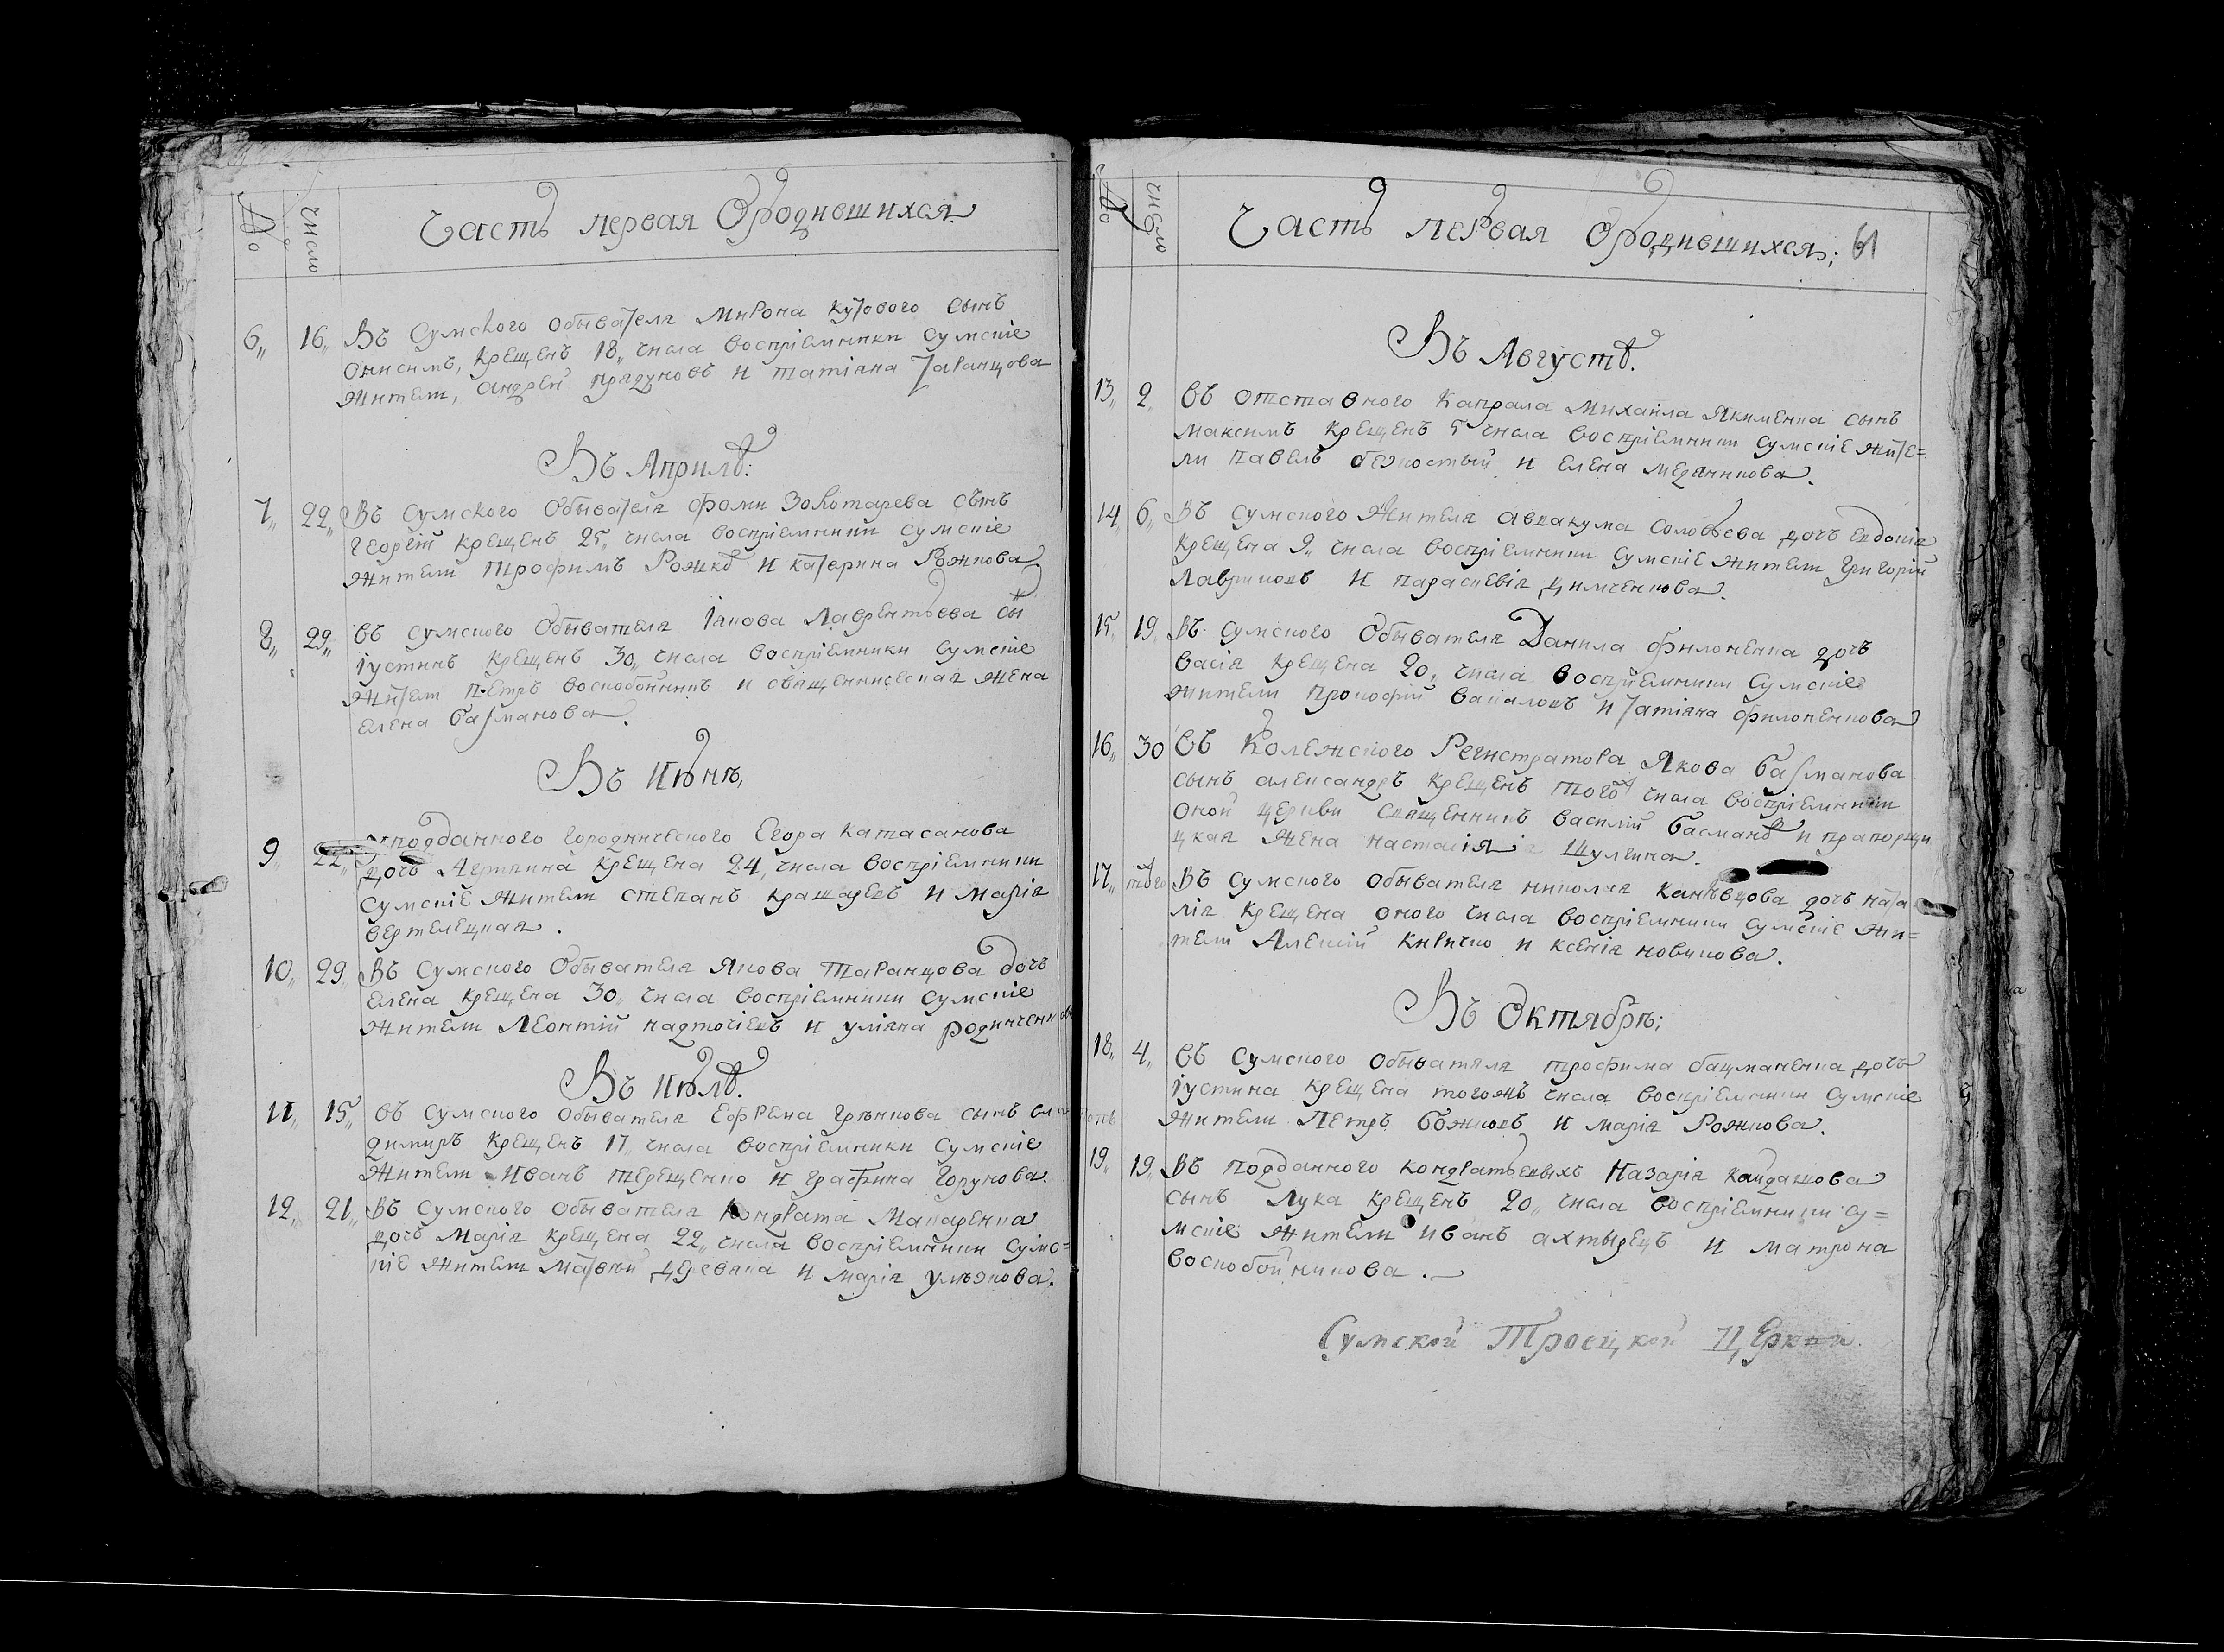 № число Часть первая Ородившихся
6,, 16,, Въ Сумского обывателя Мирона Кутового сынъ
Онисимъ, крещенъ 18,, числа восприемники сумские
жители, андрей прядуновъ и татиана Таранцова
Въ Априлѣ:
7,, 22,, Въ Сумского Обывателя Фоми Золотарева сынъ
георгий крещенъ 25,, числа восприемники сумские
жители Трофимъ Рожко и катерина Рожкова
8,, 29,, въ сумского Обывателя Iакова Лаврентьева сы
iустинъ крещенъ 30,, числа восприемники сумские
жители петръ воскобойникъ и священническая жена
елена басманова.
Въ Июнѣ,
9 22,, подданного городнического Егора катасанова
дочь крещена 24, числа восприемники
сумские жители степанъ крашаревъ и мария
вертелецкая.
10,, 29 Въ Сумского Обывателя Якова Таранцова дочь
елена крещена 30,, числа восприемники сумские
жители Леонтий надточiевъ и улiяна родинченкова
Въ Июлѣ.
11,, 15,, въ сумского обывателя Ефрема Грѣнкова сынъ вла
димиръ крещенъ 17,, числа восприемники сумские
жители Иванъ терещенко и графина Горунова.
12,, 21,, Въ Сумского обывателя Кондрата Макаренка
дочь Мария крещена 22,, числа восприемники сумс=
кие жители Матвѣй деревяка и мария
№ число Часть первая Ородившихся; 61
Въ Августѣ.
13,, 2,, въ отставного капрала михайла Якименка сынъ
максимъ крещенъ 5 числа восприемники сумские жите=
ли павелъ безкостый и елена медяникова.
14 6,, Въ сумского жителя авдакума соловьева дочь евдокия
крещена 9,, числа восприемники сумские жители Григорий
Лавриковъ и параскевия димченкова.
15,, 19,, Въ сумского Обывателя Данила филоненка дочь
васiя крещена 20,, числа восприемники сумские
жители прокофий вакаловъ и татиана филоненкова
16,, 30 Въ Колежского Регистратора Якова басманова
сынъ александръ крещенъ того числа восприемники
оной церкви священникъ василий басмановъ и прапорщи
цкая жена настасия Шулгина.
17,, того Въ сумского обывателя николая канѣвцова дочь ната
лия крещена оного числа восприемники сумские жи=
тели Алексий Киричко и ксения новикова.
Въ Октябрѣ;
18,, 4,, въ сумского обывателя трофима бацманенка дочь
iустина крещена тогожъ числа восприемники сумские
жители Петръ божковъ и мария Рожкова.
19,, 19,, Въ подданного кондратьевыхъ Назария Кандашова
сынъ Лука крещенъ 20,, числа восприемники су=
мские жители иванъ ахтырецъ и матрона
воскобойникова.
Сумской Троецкой Церкви.